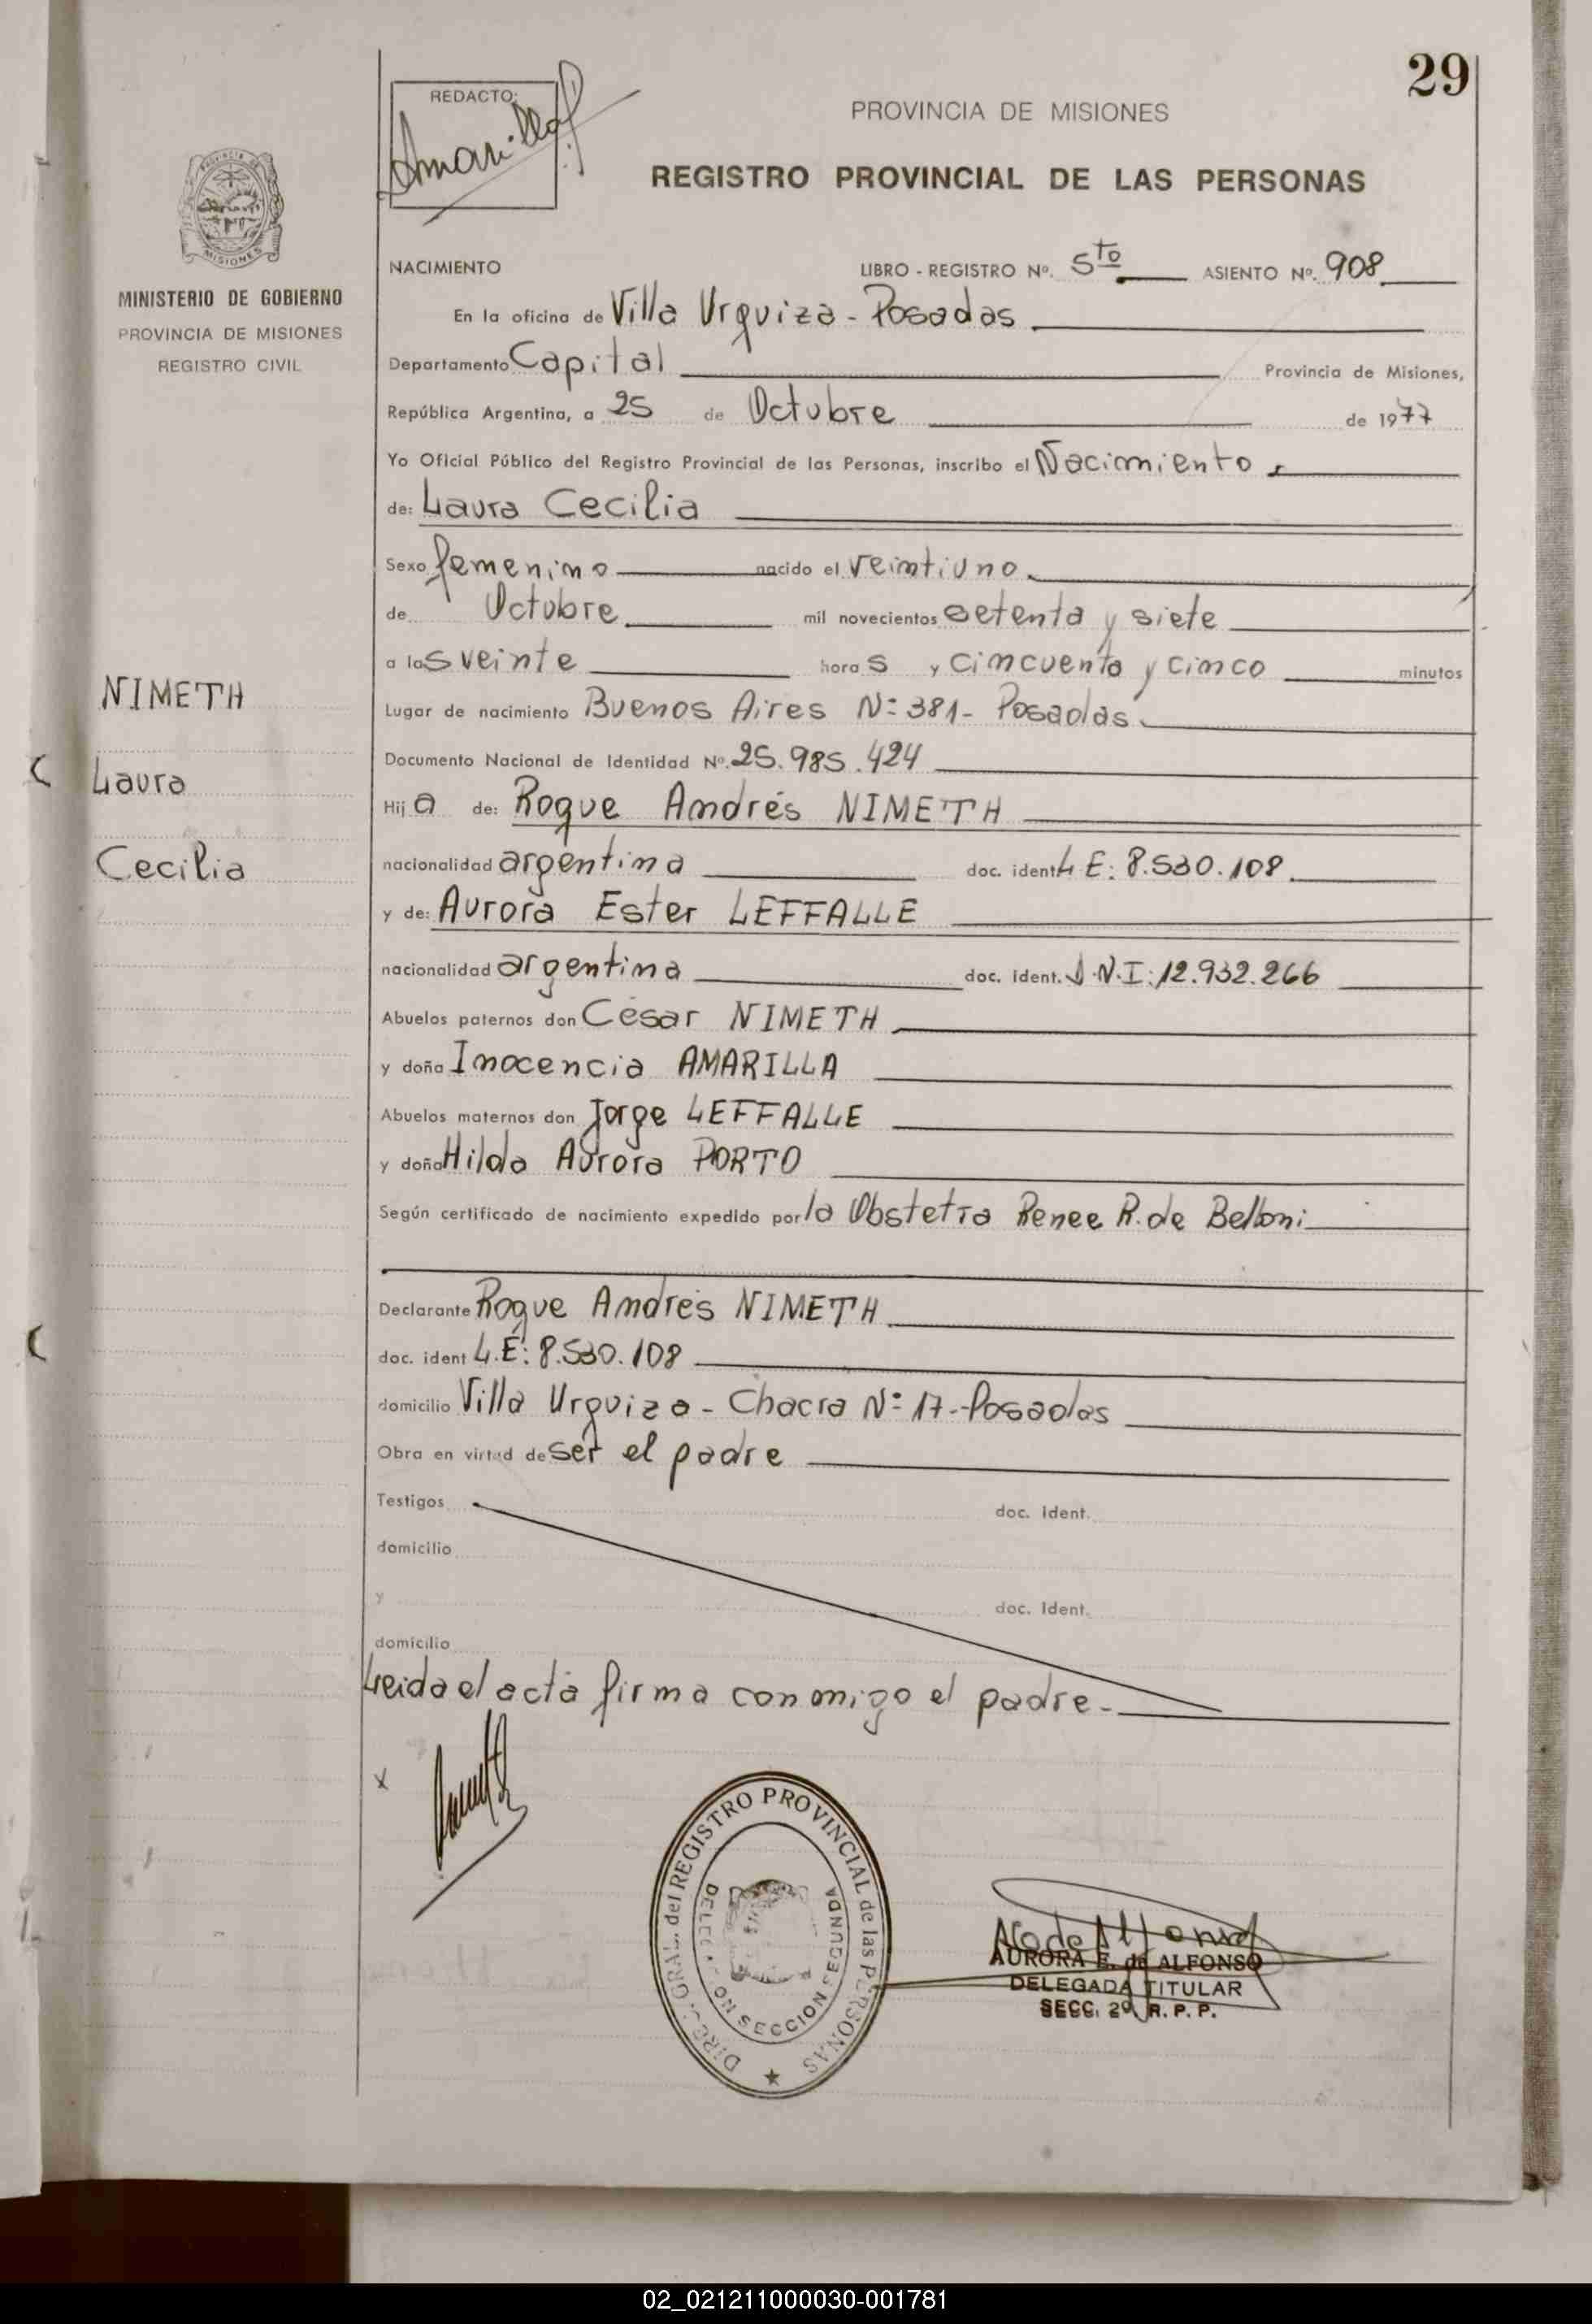 29
REDACTO:
Amarilla
PROVINCIA DE MISIONES
REGISTRO PROVINCIAL DE LAS PERSONAS
PROVINCIA DE
MISIONES
MINISTERIO DE GOBIERNO
PROVINCIA DE MISIONES
REGISTRO CIVIL
NIMETH
Laura
Cecilia
NACIMIENTO LIBRO - REGISTRO Nº. 5to ASIENTO Nº. 908
En la oficina de Villa Urquiza - Posadas
Departamento Capital Provincia de Misiones,
República Argentina, a 25 de Octubre de 1977
Yo Oficial Público del Registro Provincial de las Personas, inscribo el Nacimiento
de: Laura Cecilia
Sexo femenino nacido el veintiuno
de Octubre mil novecientos setenta y siete
a las veinte horas y cincuenta y cinco minutos
Lugar de nacimiento Buenos Aires Nº 381- Posadas
Documento Nacional de Identidad Nº. 25.985.424
Hija de: Roque Andrés NIMETH
nacionalidad argentina doc. ident. L E: 8.530.108
y de: Aurora Ester LEFFALLE
nacionalidad argentina doc. ident. D.N.I: 12.932.266
Abuelos paternos don César NIMETH
y doña Inocencia AMARILLA
Abuelos maternos don Jorge LEFFALLE
y doña Hilda Aurora PORTO
Según certificado de nacimiento expedido por la Obstetra Renee R. de Belloni
Declarante Roque Andrés NIMETH
doc. ident L.E: 8.530.108
domicilio Villa Urquiza - Chacra Nº 17.-Posadas
Obra en virtud de ser el padre
Testigos doc. ident.
domicilio
y doc. ident.
domicilio
Leida el acta firma conmigo el padre.-
x
DIREC. GRAL. del REGISTRO PROVINCIAL de las PERSONAS
DELEGACION SECCION SEGUNDA
AURORA E. de ALFONSO
DELEGADA TITULAR
SECC. 2º R. P. P.
02_021211000030-001781